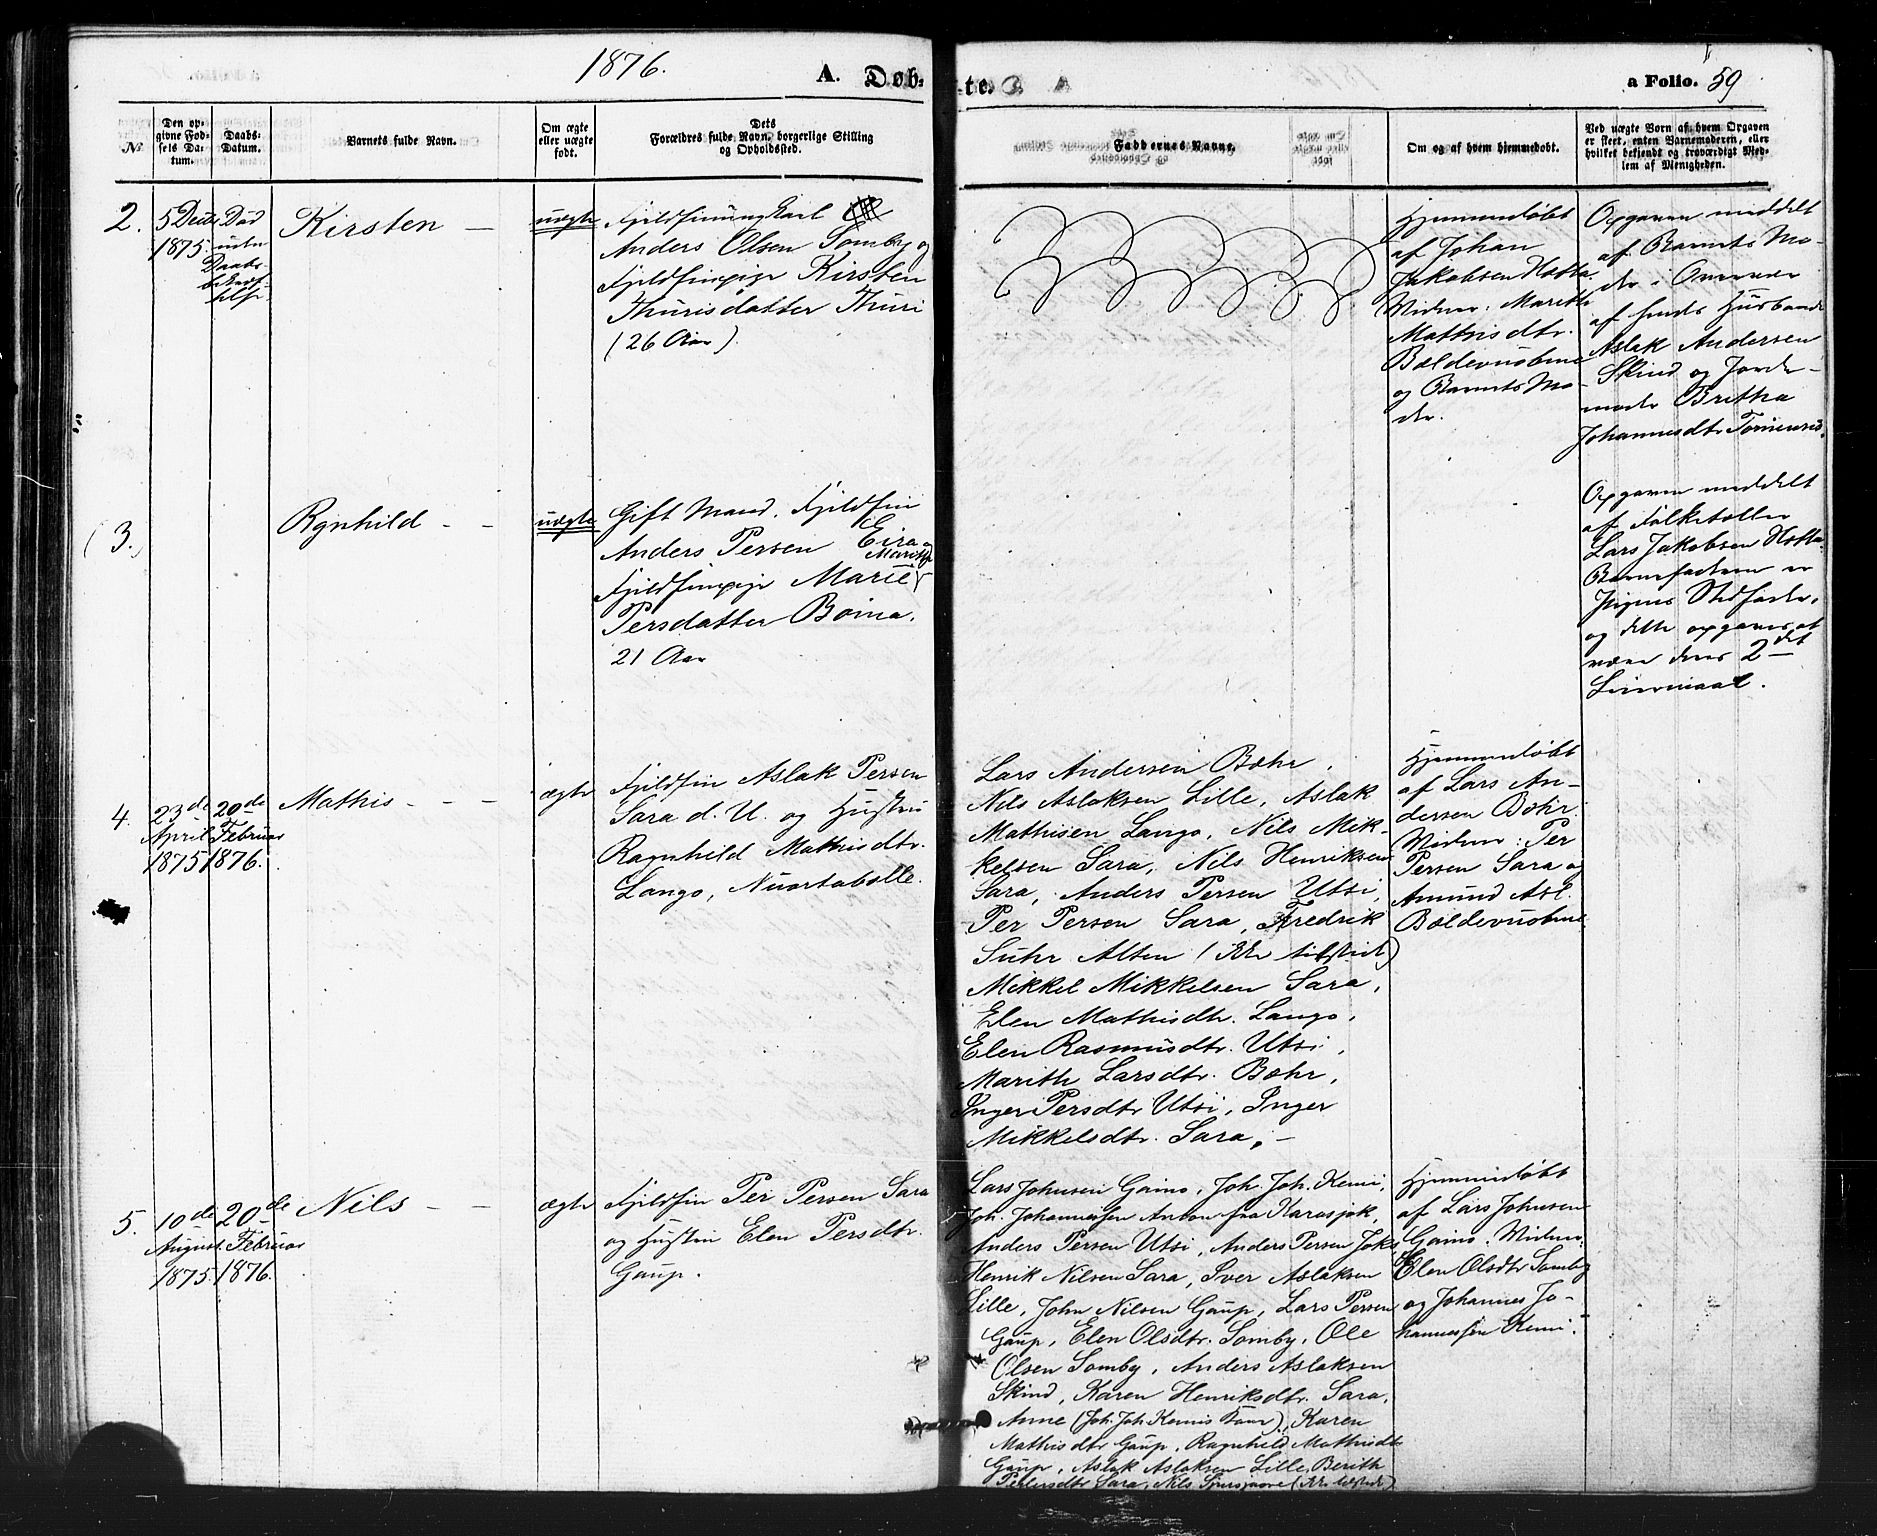 1876.
A. Døb-
te.
a Folio. 59
№
Den op-
givne Fød-
sels Da-
tum.
Daabs-
Datum.
Barnets fulde Navn.
Om ægte
eller uægte
født.
Dets
Forældres fulde Navn, borgerlige Stilling
og Opholdssted.
Faddernes Navne.
Om og af hvem hjemmedøbt.
Ved uægte Børn af hvem Opgaven
er skeet, enten Barnemoderen, eller
hvilket bekjendt og troværdigt Med-
lem af Menigheden.
2.
5 Decbr
1875.
Død
uden
Daabs-
bekræf-
telse
Kirsten
uægte
Fjeldfinungkarl
Anders Olsen Somby og
Fjeldfinpige Kirsten
Thurisdatter Thuri
(26 Aar).
Hjemmedøbt
af Johan
Jakobsen Hætta.
Vidner: Marith
Mathisdtr.
Bældevuobme
og Barnets Mo-
der.
Opgaven meddelt
af Barnets Mo-
der i Overvær
af hendes Husbonde
Aslak Andersen
Skind og Jorde-
moder Britha
Johannesdtr Tornensis.
(3.)
Rgnhild - -
uægte
Gift Mand, Fjeldfin
Anders Persen Eira og
Marith
Fjeldfinpige Marie
Persdatter Boina.
21 Aar
Opgaven meddelt
af Folketæller
Lars Jakobsen Hætta.
Barnefaderen er
Pigens Stedfader,
og dette opgaves at
være deres 2det
Leiermaal.
4.
23de
April
1875
20de
Februar
1876.
Mathis - - -
ægte
Fjeldfin Aslak Persen
Sara d. U. og Hustru
Ragnhild Mathisdtr.
Lango, Nuortabelle.
Lars Andersen Bæhr,
Nils Aslaksen Lille, Aslak
Mathisen Lango, Nils Mik-
kelsen Sara, Nils Henriksen
Sara, Anders Persen Utsi,
Per Persen Sara, Fredrik
Suhr Alten (ikke tilstede)
Mikkel Mikkelsen Sara,
Elen Mathisdtr. Lango,
Elen Rasmusdtr. Utsi,
Marith Larsdtr. Bæhr,
Inger Persdtr Utsi, Inger
Mikkelsdtr. Sara. -
Hjemmedøbt
af Lars An-
dersen Bæhr.
Vidner: Per
Persen Sara og
Amund Asl.
Bældevuobme.
5.
10de
August
1875.
20de
Februar
1876.
Nils - -
ægte
Fjeldfin Per Persen Sara
og Hustru Elen Persdtr.
Gaup.
Lars Johnsen Gaino, Joh. Joh. Kemi,
Joh. Johannessen Anbon fra Karasjok,
Anders Persen Utsi, Anders Persen Joks,
Henrik Nilsen Sara, Iver Aslaksen
Lille, John Nilsen Gaup, Lars Persen
Gaup, Elen Olsdtr. Somby, Ole
Olsen Somby, Anders Aslaksen
Skind, Karen Henriksdtr. Sara,
Anne (Joh. Joh. Kemis Kone), Karen
Mathisdtr Gaup, Ragnhild Mathisdtr
Gaup, Aslak Aslaksen Lille, Berith
Pedersdtr Sara, Nils (ikke tilstede)
Hjemmedøbt
af Lars Johnsen
Gaino. Vidner:
Elen Olsdtr Somby
og Johannes Jo-
hannessen Kemi.